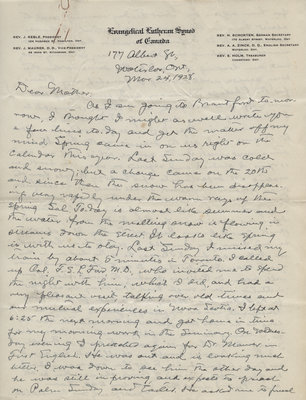 Evangelical Lutheran Synod
of Canada
REV. J. REBLE, PRESIDENT
REV. J. MAURER, D.D., VICE-PRESIDENT
REV. H. SCHORTEN, GERMAN SECRETARY
REV. A. A. ZINCK, D.D., ENGLISH SECRETARY
WATERLOO, ONT.
177 Albert St.,
Waterloo, Ont.,
Mar. 24, 1928.
Dear Mother:
As I am going to Brantford to-mor-
row, I thought I might as well write you
a few lines to-day and get the matter off my
mind. Spring came in on us right on the
calendar this year. Last Sunday was cold
and snowy; but a change came on the 20th
and since then the snow has been disappear-
ing very rapidly under the warm rays of the
spring sun. To-day is almost like summer and
the water from the melting snow is flowing in
streams down the street. It looks like spring
is with us to stay. Last Sunday I missed my
train by about 5 minutes in Toronto. I called
up Col. F. S. L. Ford M.D. who invited me to spend
the night with him, which I did, and had a
very pleasant visit, talking over old times and
our mutual experiences in Nova Scotia. I left at
6:25 the next morning and got home in time
for my morning work in the Seminary. On Wednes-
day evening I preached again for Dr. Maurer in
First English. He was out and is looking much
better. I was down to see him the other day and
he was still improving and expects to preach
on Palm Sunday and Easter. He asked me to preach